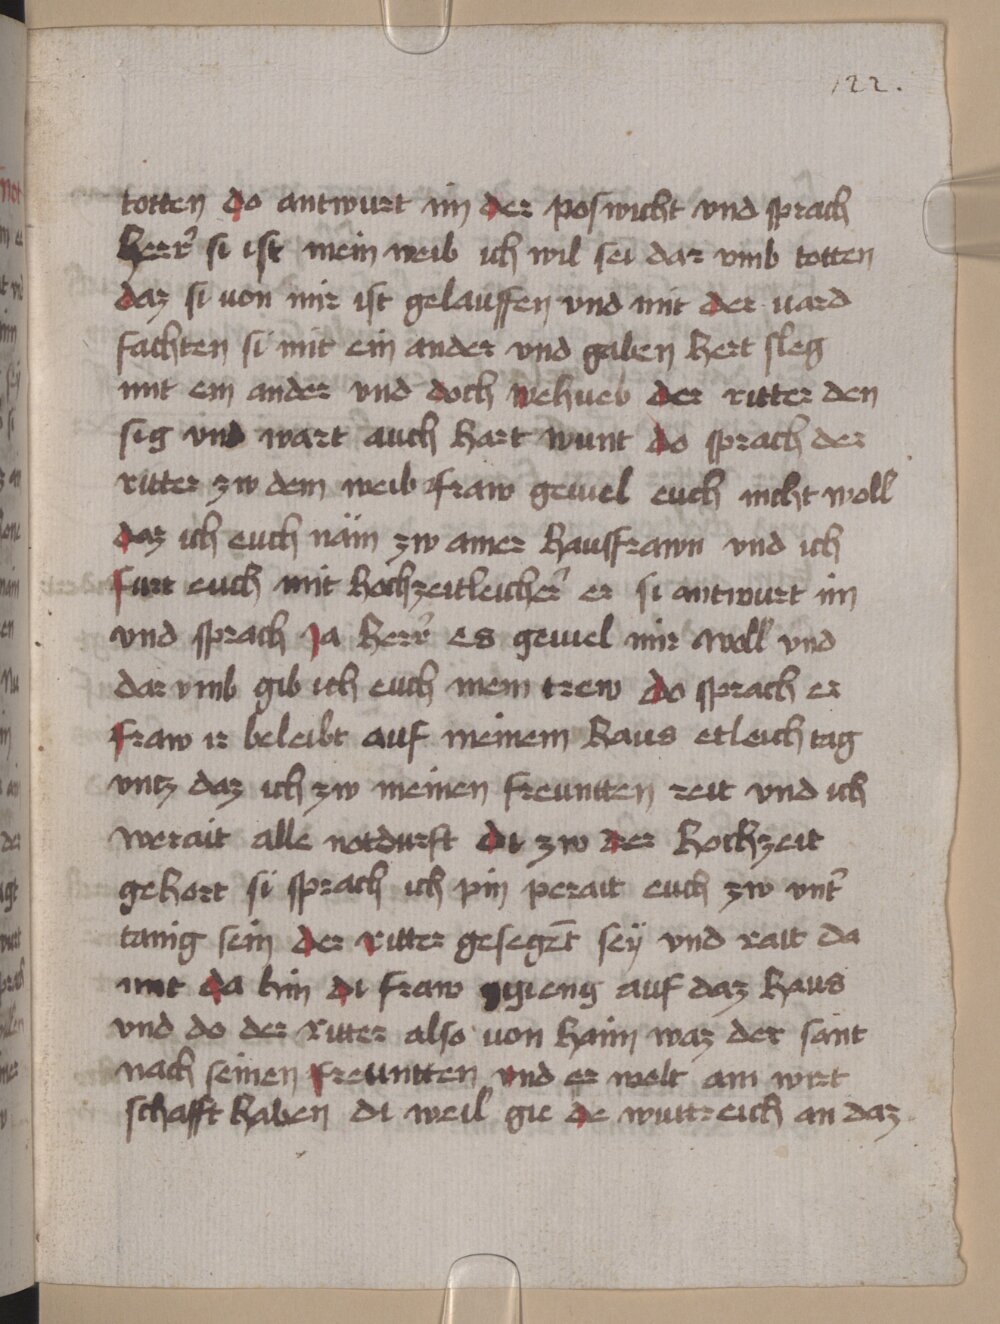 122.
totten do antwurt im der poswicht vnd sprach
herr si ist mein weib ich wil sei dar vmb totten
daz si von mir ist gelauffen vnd mit der vard
fachten si mit ein ander vnd gaben hert sleg
mit ein ander vnd doch wehueb der ritter den
sig vnd wart auch hart wunt do sprach der
ritter zw dem weib fraw geuiel euch nicht woll
daz ich euch näm zw ainer hausfrawn vnd ich
furt euch mit hochzeitleicher er si antwurt im
vnd sprach Ja herr es geuiel mir woll vnd
dar vmb gib ich euch mein trew do sprach er
fraw ir beleibt auf meinem haus etleich tag
vntz daz ich zw meinen freuntten reit vnd ich
werait alle notdurft di zw der hochzeit
gehort si sprach ich pin perait euch zw vnt̉
tanig sein der ritter gesegēt seÿ vnd rait da
mit da hin di fraw gieng auf daz haus
vnd do der ritter also von haim waz der sant
nach seinen freuntten vnd er wolt ain wirt
schafft haben di weil gie de wuttreich an daz